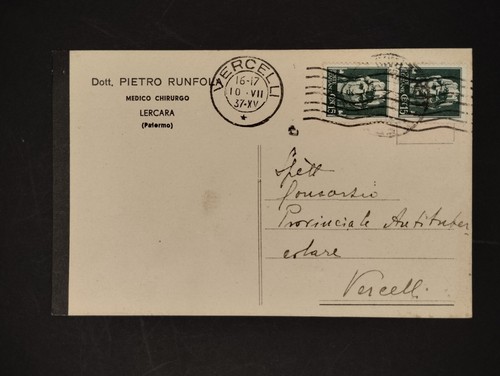 Dott. PIETRO RUNFOL
MEDICO CHIRURGO
LERCARA
(Palermo)
VERCELLI
16-17
10·VII
37·XV
CENT 15
CENT 15
Spett
Consorzio
Provinciale Antituber
colare
Vercelli